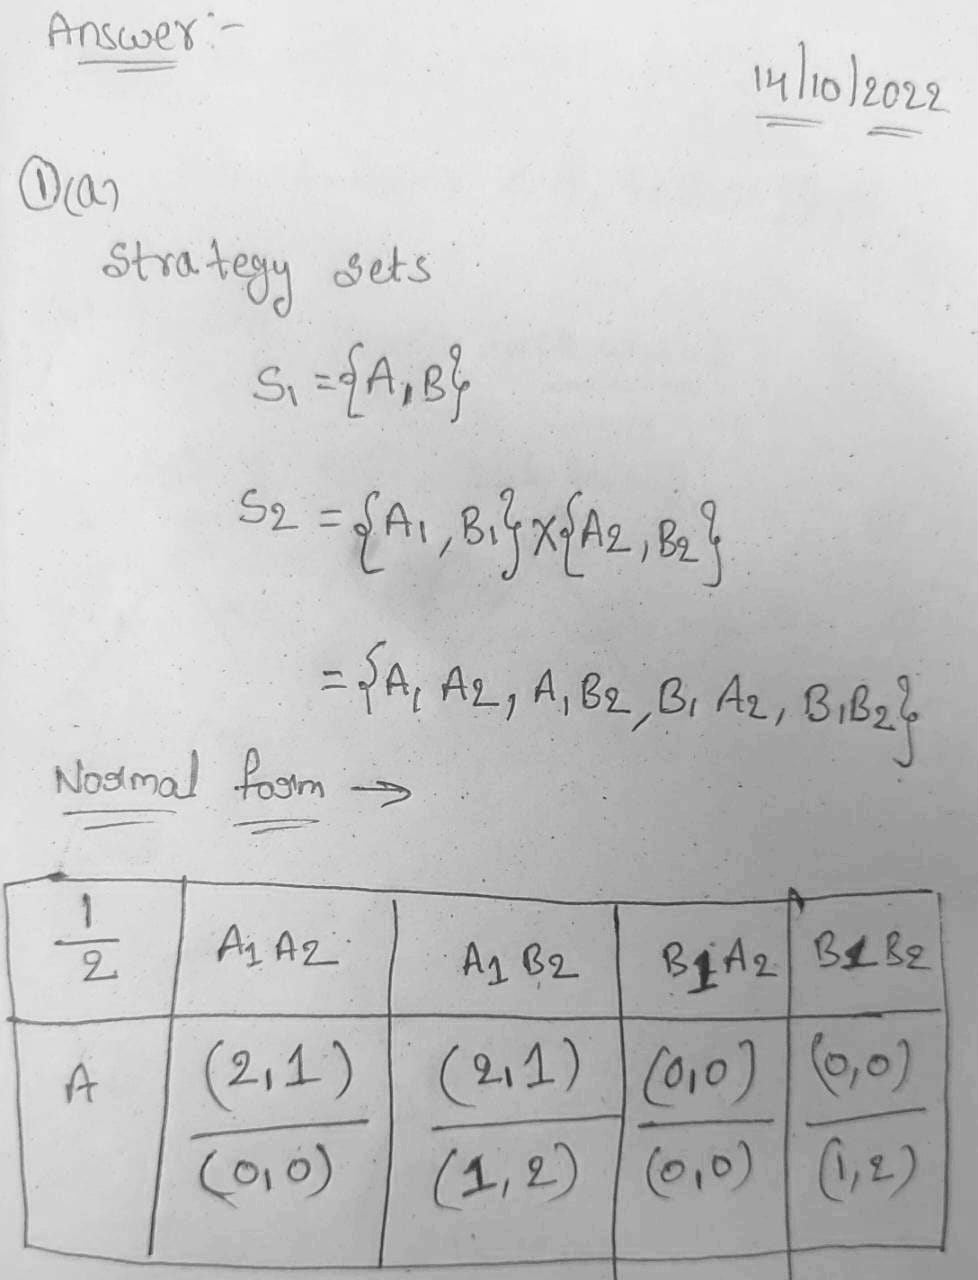 Answer:-
14/10/2022
①(a)
Strategy sets
S1 = {A, B}
S2 = {A1, B1} x {A2, B2}
= {A1 A2, A1 B2, B1 A2, B1B2}
Normal form →
1/2 A1 A2 A1 B2 B1 A2 B1 B2
A (2,1) (2,1) (0,0) (0,0)
(0,0) (1,2) (0,0) (1,2)